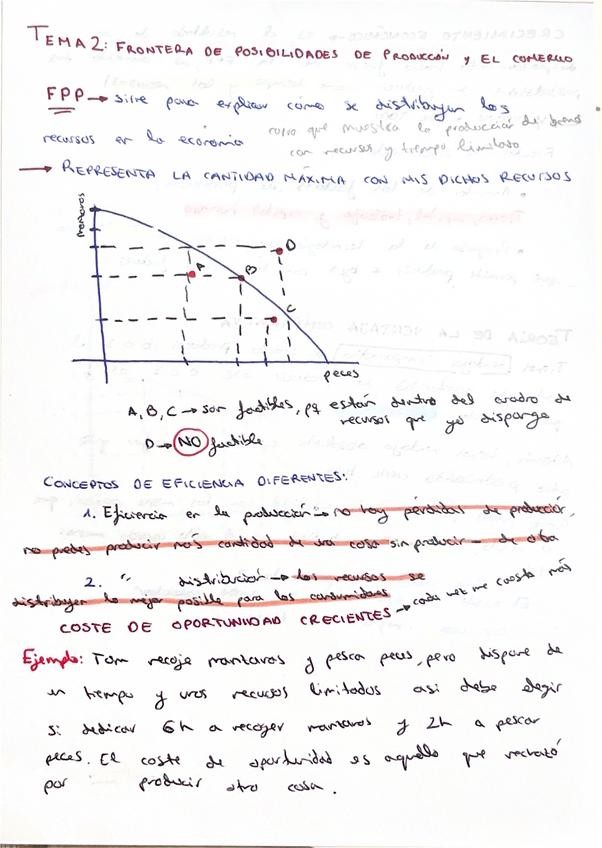 TEMA 2: FRONTERA DE POSIBILIDADES DE PRODUCCIÓN y EL COMERCIO
FPP → sirve para explicar cómo se distribuyen los
recursos en la economía
curva que muestra la producción de bienes
con recursos y tiempo limitado
→ REPRESENTA LA CANTIDAD MÁXIMA CON MIS DICHOS RECURSOS
manzanas
A
B
C
D
peces
A, B, C → son factibles, pq están dentro del cuadro de
recursos que yo dispongo
D → NO factible
CONCEPTOS DE EFICIENCIA DIFERENTES:
1. Eficiencia en la producción → no hay pérdidas de producción,
no puedes producir más cantidad de una cosa sin producir - de otra
2. " distribución → los recursos se
distribuyen lo mejor posible para los consumidores
COSTE DE OPORTUNIDAD CRECIENTES → cada vez me cuesta más
Ejemplo: Tom recoje manzanas y pesca peces, pero dispone de
un tiempo y unos recursos limitados asi debe elegir
si dedicar 6h a recoger manzanas y 2h a pescar
peces. El coste de oportunidad es aquello que rechazó
por producir otra cosa.